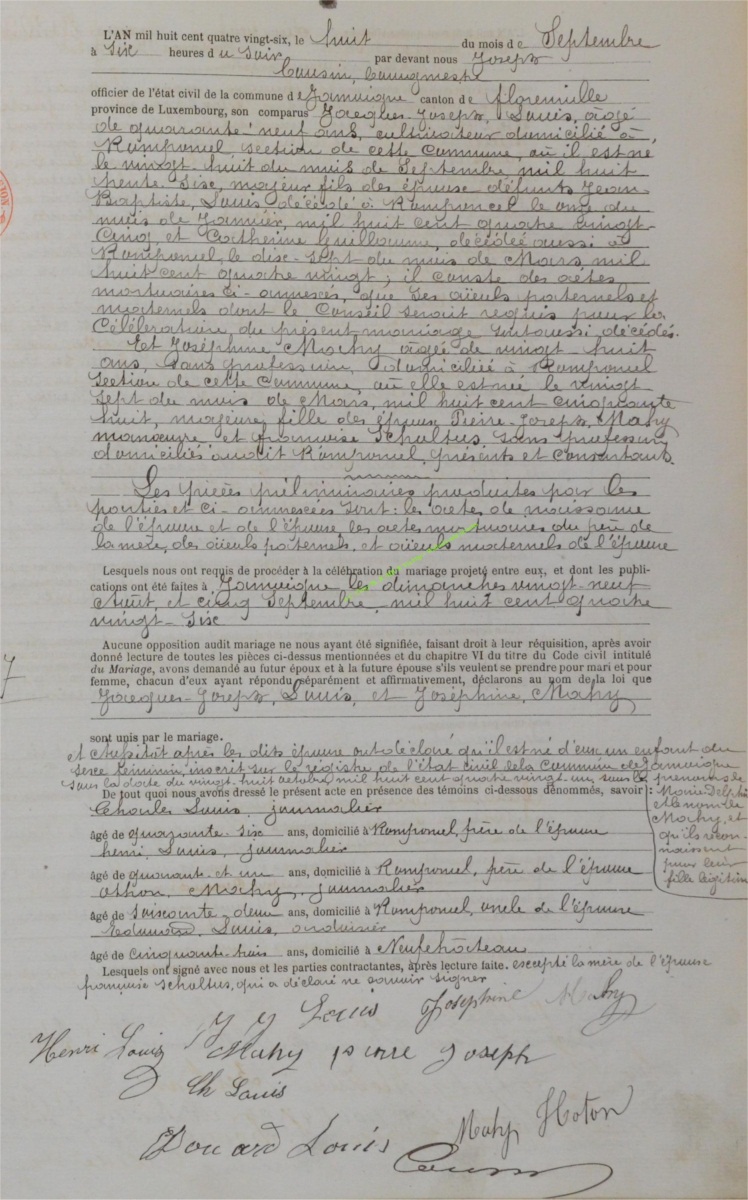 L'AN mil huit cent quatre vingt-six, le huit du mois de Septembre
à Six heures du Soir par devant nous Joseph
Cousin, bourgmestre
officier de l'état civil de la commune de Jamoigne canton de florenville
province de Luxembourg, son comparus Jacques-Joseph, Louis, âgé
de quarante-neuf ans, cultivateur domicilié à,
Romponcel section de cette Commune, où il est né
le vingt-huit du mois de Septembre mil huit
trente Six, majeur fils des époux défunts Jean
Baptiste, Louis décédé à Romponcel le onze du
mois de Janvier, mil huit cent quatre vingt-
Cinq et Catherine Guillaume, décédée aussi à
Romponcel, le dix-sept du mois de Mars, mil
huit cent quatre vingt ; il conste des actes
mortuaires ci-annexés, que ses aïeuls paternels et
maternels dont le Conseil serait requis pour la
Célébration, du présent mariage sont aussi décédés.
Et Joséphine Mahy âgée de vingt huit
ans, Sans profession, domiciliée à Romponcel
section de cette Commune, où elle est née le vingt
sept du mois de Mars, mil huit cent cinquante
huit, majeure, fille des époux Pierre-Joseph, Mahy
manœuvre, et françoise Schultus, sans profession
domiciliés audit Romponcel, présents et Consentants.
Les pièces préliminaires produites par les
parties et ci-annexées sont : les actes de naissance
de l'épouse et de l'époux, les actes mortuaires du père de
la mère, des aïeuls paternels, et aïeuls maternels de l'époux
Lesquels nous ont requis de procéder à la célébration du mariage projeté entre eux, et dont les publi-
cations ont été faites à Jamoigne les dimanches vingt-neuf
Août, et cinq Septembre mil huit cent quatre
vingt-Six
Aucune opposition audit mariage ne nous ayant été signifiée, faisant droit à leur réquisition, après avoir
donné lecture de toutes les pièces ci-dessus mentionnées et du chapitre VI du titre du Code civil intitulé
du Mariage, avons demandé au futur époux et à la future épouse s'ils veulent se prendre pour mari et pour
femme, chacun d'eux ayant répondu séparément et affirmativement, déclarons au nom de la loi que
Jacques-Joseph, Louis, et Joséphine, Mahy
sont unis par le mariage.
et aussitôt après les dits époux ont déclaré qu'il est né d'eux un enfant du
sexe féminin, inscrit sur le registre de l'état civil de la Commune de Jamoigne
sous la date du vingt-huit octobre mil huit cent quatre vingt un, sous les prénoms de
Marie Delphi
et le nom de
Mahy, et
qu'ils recon-
naissent
pour leur
fille légitim
De tout quoi nous avons dressé le présent acte en présence des témoins ci-dessous dénommés, savoir :
Charles Louis journalier
âgé de quarante-six ans, domicilié à Romponcel, frère de l'époux
henri, Louis, journalier
âgé de quarante et un ans, domicilié à Romponcel, frère de l'époux
Mahy, journalier
âgé de Soixante deux ans, domicilié à Romponcel, oncle de l'épouse
Edouard, Louis,
âgé de cinquante-trois ans, domicilié à Neufchâteau
Lesquels ont signé avec nous et les parties contractantes, après lecture faite. excepté la mère de l'épouse
françoise schultus, qui a déclaré ne savoir signer
J J Louis Josephine Mahy
Henri Louis Mahy pierre Joseph
Ch Louis
Edouard Louis Mahy Hoton
Cousin
7